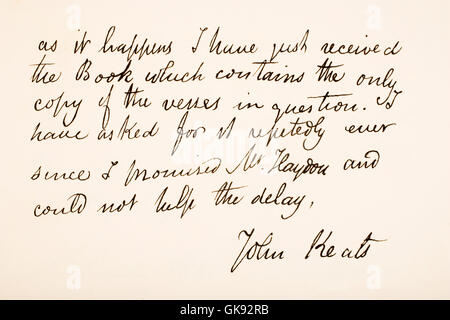 as it happens I have just received
the Book which contains the only
copy of the verses in question. I
have asked for it repetedly ever
since I promised Mr Haydon and
could not help the delay.
John Keats
alamy stock photo
GK92RB
www.alamy.com